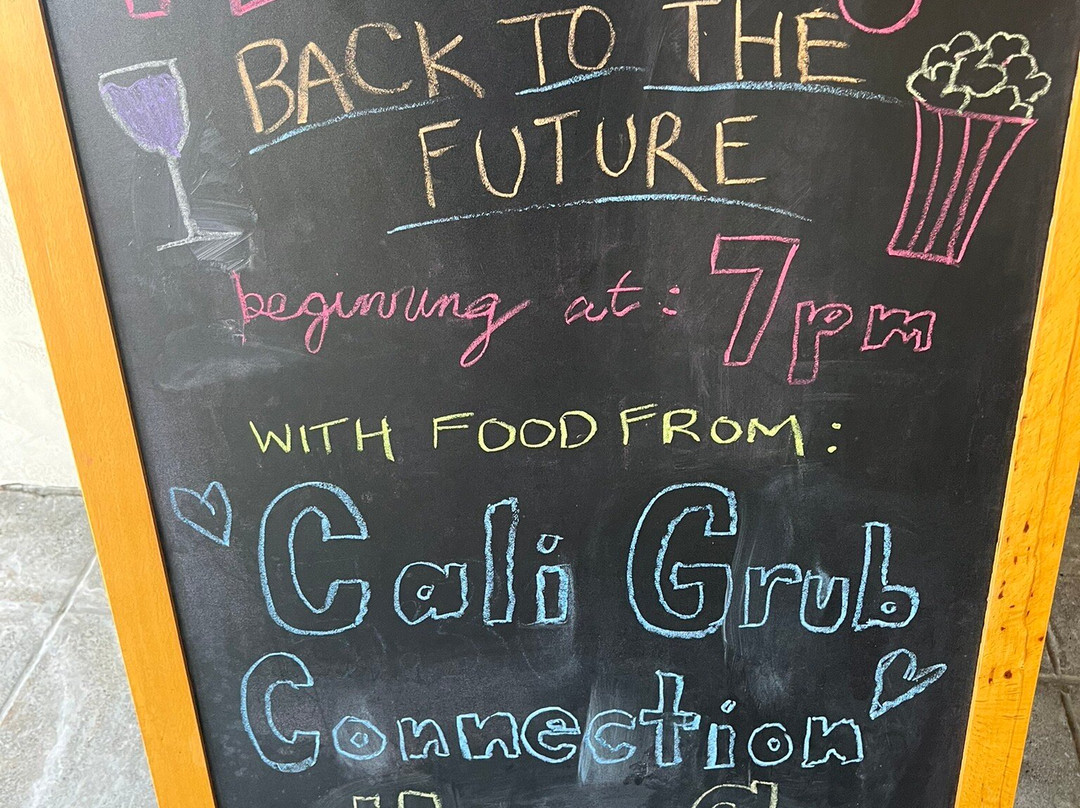 BACK TO THE
FUTURE
beginning at: 7pm
WITH FOOD FROM:
Cali Grub
Connection